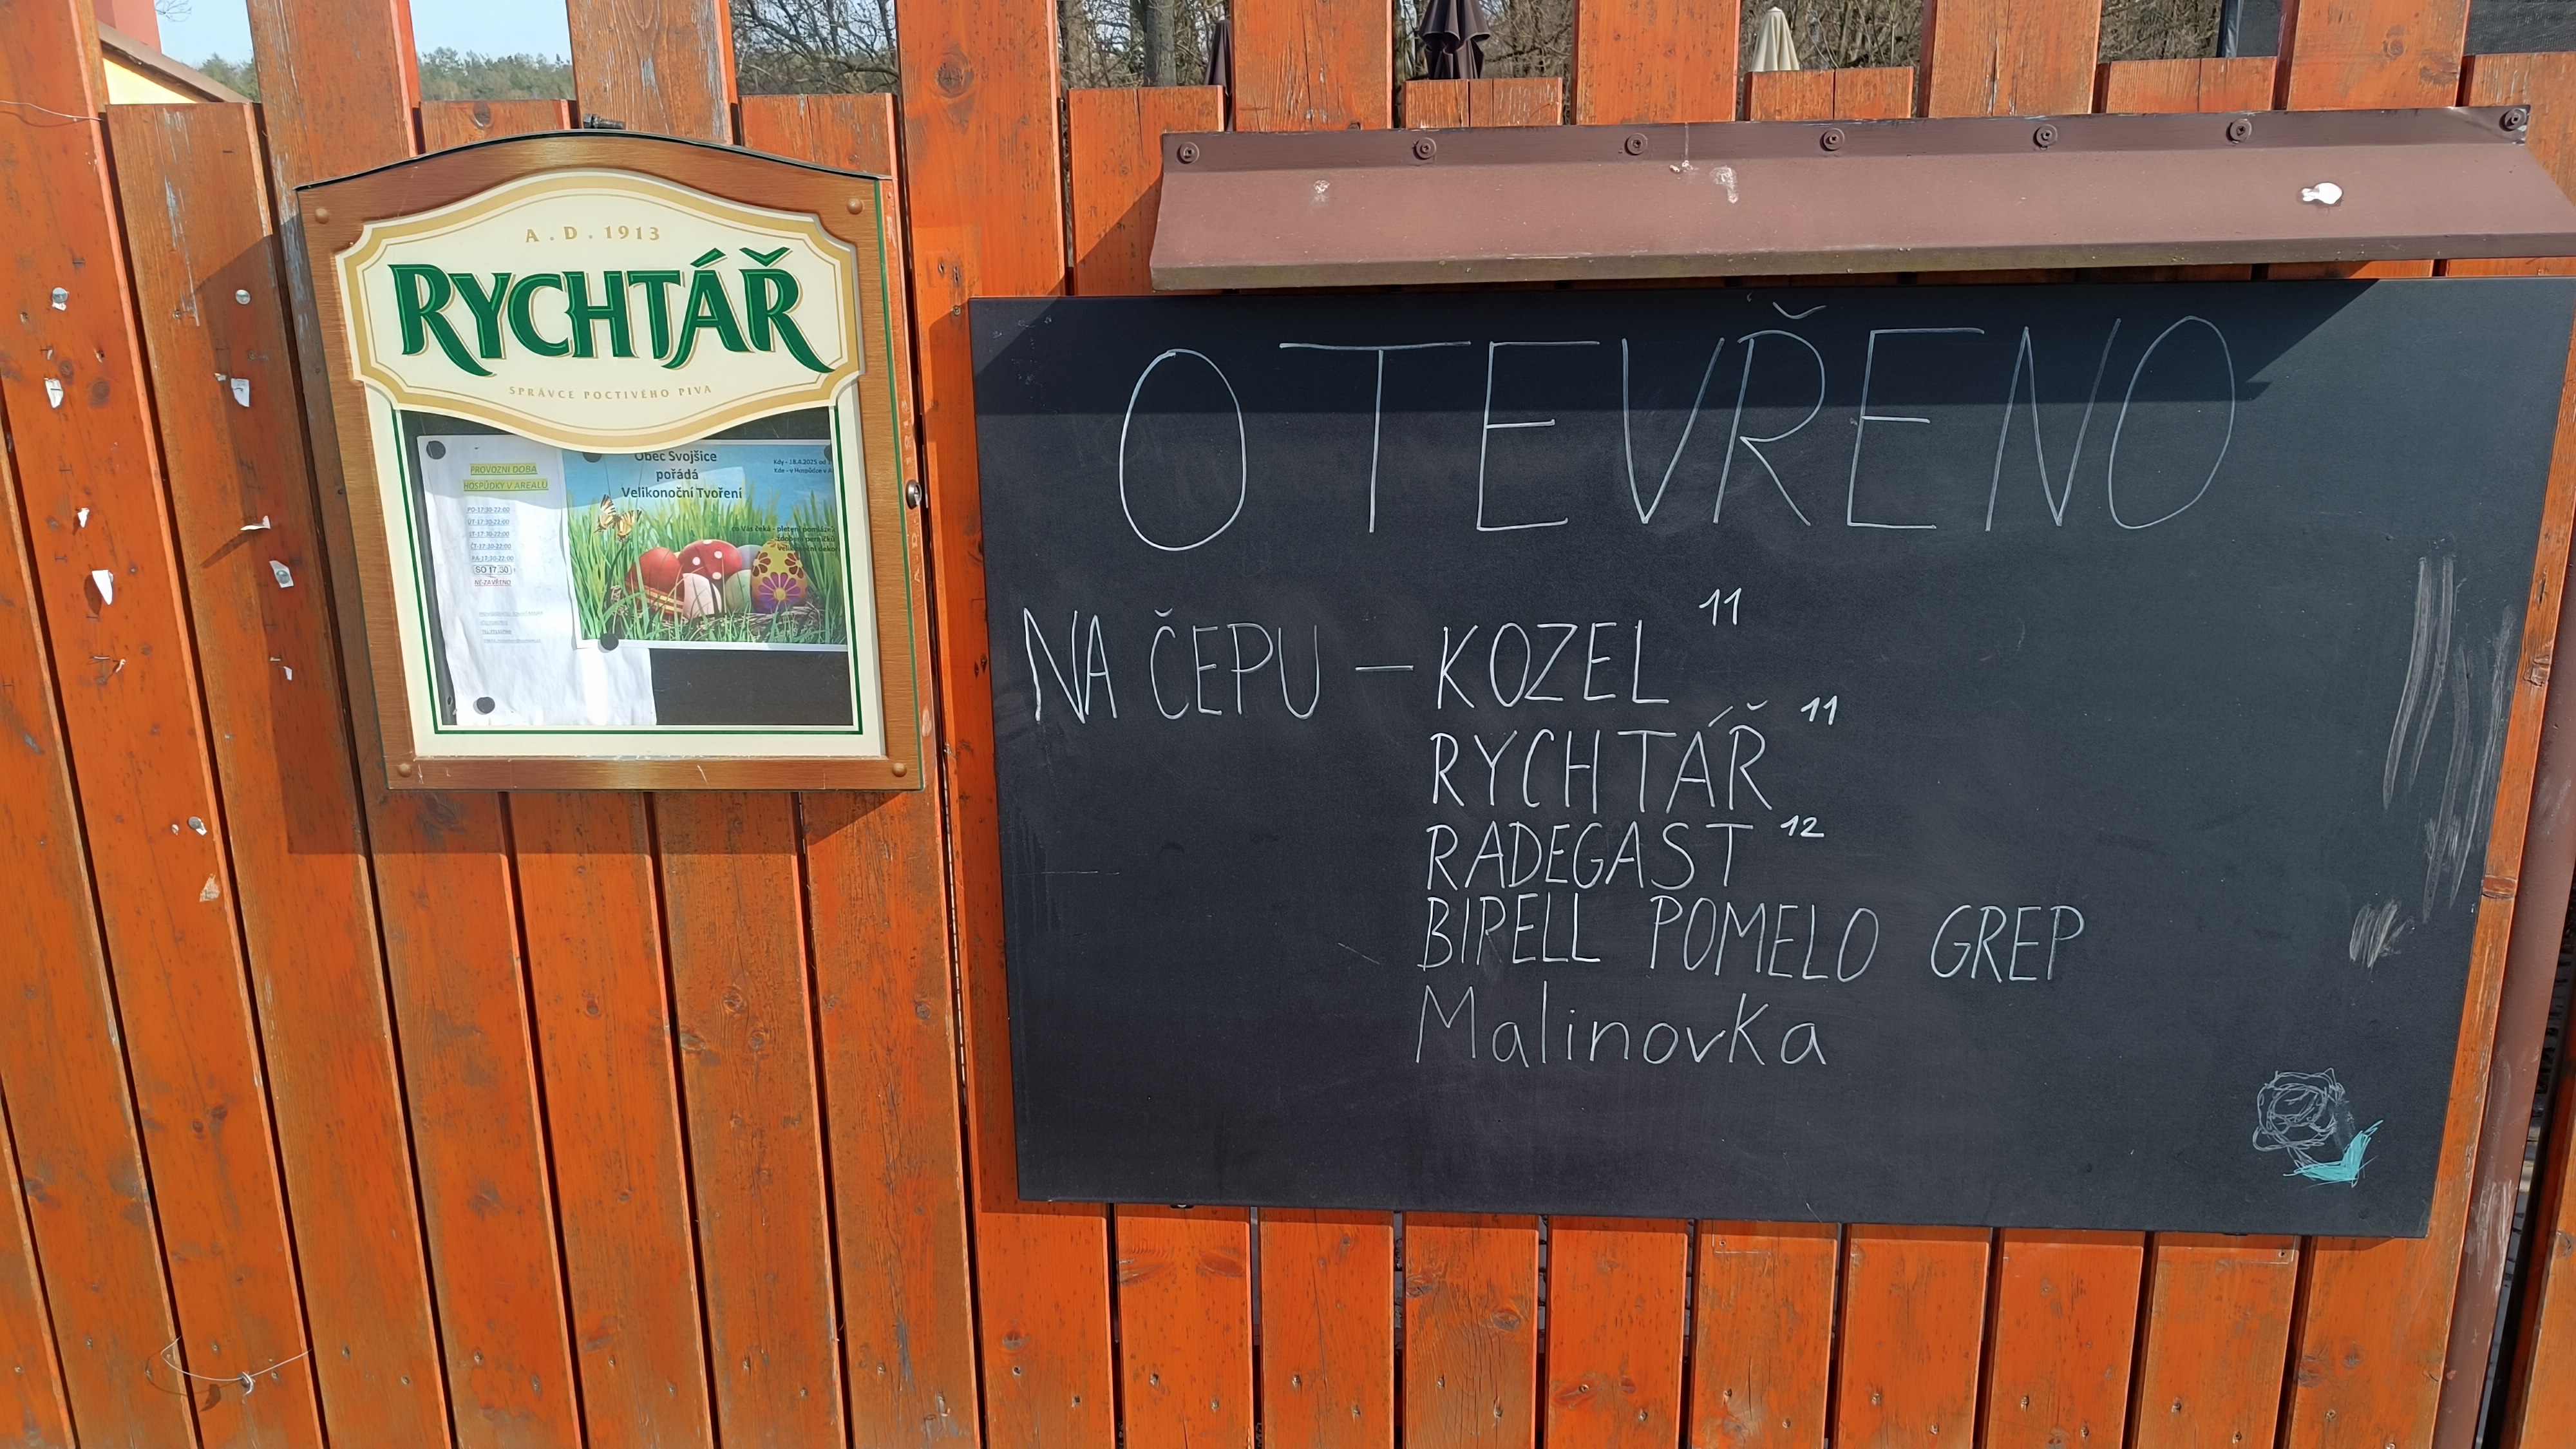 A.D.1913
RYCHTÁŘ
SPRÁVCE POCTIVÉHO PIVA
PROVOZNÍ DOBA
HOSPŮDKY V AREÁLU
PO-17:30-22:00
ÚT-17:30-22:00
ST-17:30-22:00
ČT-17:30-22:00
PÁ-17:30-22:00
SO 17:30
NE-ZAVŘENO
Obec Svojšice
pořádá
Velikonoční Tvoření
Kdy - 18.4.2025 od
Kde - v Hospůdce v
Vás čeká - pletení pomlázek
zdobení perníčků
OTEVŘENO
NA ČEPU - KOZEL 11
RYCHTÁŘ 11
RADEGAST 12
BIRELL POMELO GREP
Malinovka